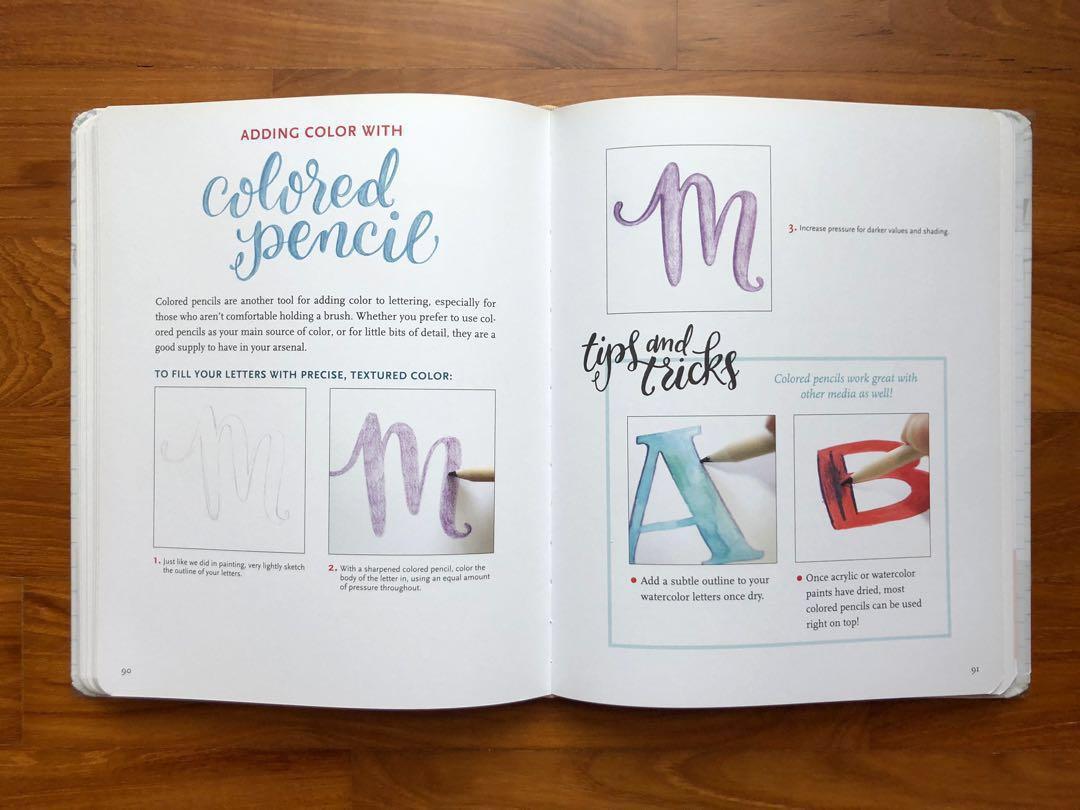 ADDING COLOR WITH
colored
pencil
Colored pencils are another tool for adding color to lettering, especially for
those who aren't comfortable holding a brush. Whether you prefer to use col-
ored pencils as your main source of color, or for little bits of detail, they are a
good supply to have in your arsenal.
TO FILL YOUR LETTERS WITH PRECISE, TEXTURED COLOR:
m
m
1. Just like we did in painting, very lightly sketch
the outline of your letters.
2. With a sharpened colored pencil, color the
body of the letter in, using an equal amount
of pressure throughout.
90
m
3. Increase pressure for darker values and shading.
tips and
tricks
Colored pencils work great with
other media as well!
A
B
• Add a subtle outline to your
watercolor letters once dry.
• Once acrylic or watercolor
paints have dried, most
colored pencils can be used
right on top!
91